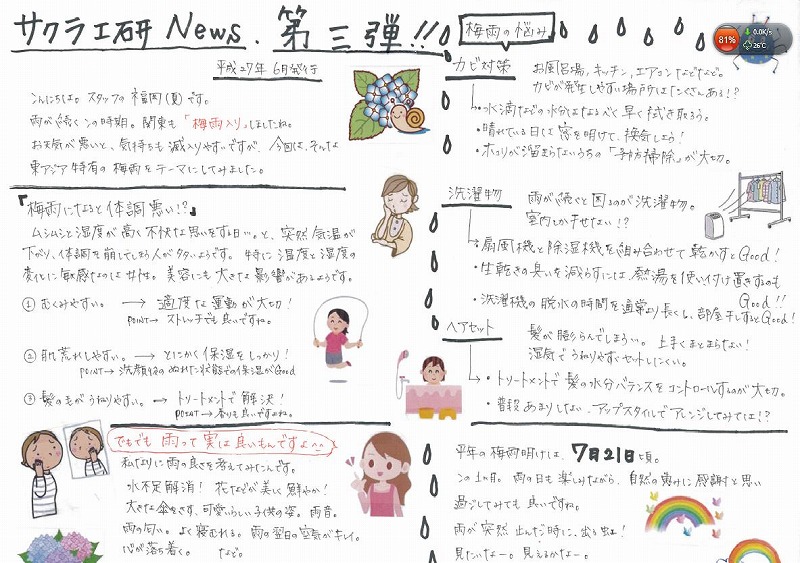 サクラエ研 News. 第三弾!!
平成27年 6月発行
こんにちは。スタッフの福岡(夏)です。
雨が続くこの時期。関東も「梅雨入り」しましたね。
お天気が悪いと、気持ちも滅入りやすいですが、今回は、そんな
東アジア特有の梅雨をテーマにしてみました。
『梅雨になると体調悪い!?』
ムシムシと湿度が高く不快な思いをする日…。と、突然気温が
下がり、体調を崩してしまう人が多いようです。特に温度と湿度の
変化に敏感なのは女性。美容にも大きな影響があるようです。
① むくみやすい。 → 適度な運動が大切!
POINT→ ストレッチでも良いですね。
② 肌荒れしやすい。 → とにかく保湿をしっかり!
POINT→ 洗顔後のぬれた状態での保湿がGood
③ 髪の毛がうねりやすい。 → トリートメントで解決!
POINT→ 香りも良いですよね。
でもでも 雨って実は良いもんですよ^^
私なりに雨の良さを考えてみたんです。
水不足解消! 花などが美しく鮮やか!
大きな傘をさす、可愛いらしい子供の姿。雨音。
雨の匂い。よく寝むれる。雨の翌日の空気がキレイ。
心が落ち着く。 など。
梅雨の悩み
81%
0.0K/s
26℃
カビ対策
お風呂場、キッチン、エアコンなどなど。
カビが発生しやすい場所はたくさんある!?
・水滴などの水分はなるべく早く拭き取ろう。
・晴れている日は窓を明けて、換気しよう!
・ホコリが溜まらないうちの「予防掃除」が大切。
洗濯物
雨が続くと困るのが洗濯物。
室内しか干せない!?
・扇風機と除湿機を組み合わせて乾かすとGood!
・生乾きの臭いを減らすには、熱湯を使い付け置きするのも
Good!!
・洗濯機の脱水の時間を通常より長くし、部屋干しするとGood!
ヘアセット
髪が膨らんでしまう…。上手くまとまらない!
湿気でうねりやすくセットしにくい。
・トリートメントで髪の水分バランスをコントロールするのが大切。
・普段あまりしない、アップスタイルでアレンジしてみては!?
平年の梅雨明けは、7月21日頃。
この1ヶ月。雨の日も楽しみながら、自然の恵みに感謝と思い
過ごしてみても良いですね。
雨が突然止んだ時に、出る虹!
見たいなー。見えるかなー。